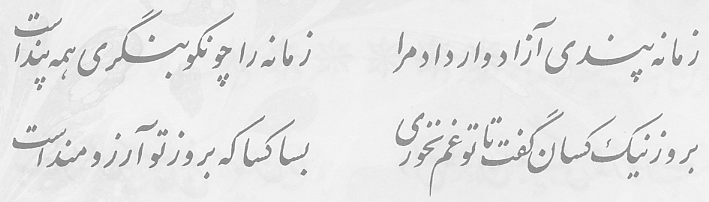 زمانه پندی آزادوار داد مرا زمانه را چو نکو بنگری همه پند است
بروز نیک کسان گفت تا تو غم نخوری بسا کسا که بروز تو آرزومند است